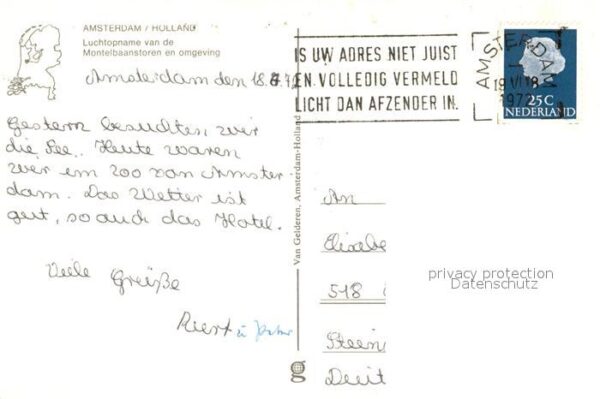 AMSTERDAM / HOLLAND
Luchtopname van de
Montelbaanstoren en omgeving
Amsterdam den 18.
Gestern besuchten wir
die See. Heute waren
wir im Zoo von Amster
dam. Das Wetter ist
gut, so auch das Hotel.
Viele Grüße
IS UW ADRES NIET JUIST
EN VOLLEDIG VERMELD
LICHT DAN AFZENDER IN.
AMSTERDAM
19 VI 18
1972
25C
NEDERLAND
Van Gelderen, Amsterdam-Holland
An
Elisabe
518
Stein
Deut
privacy protection
Datenschutz